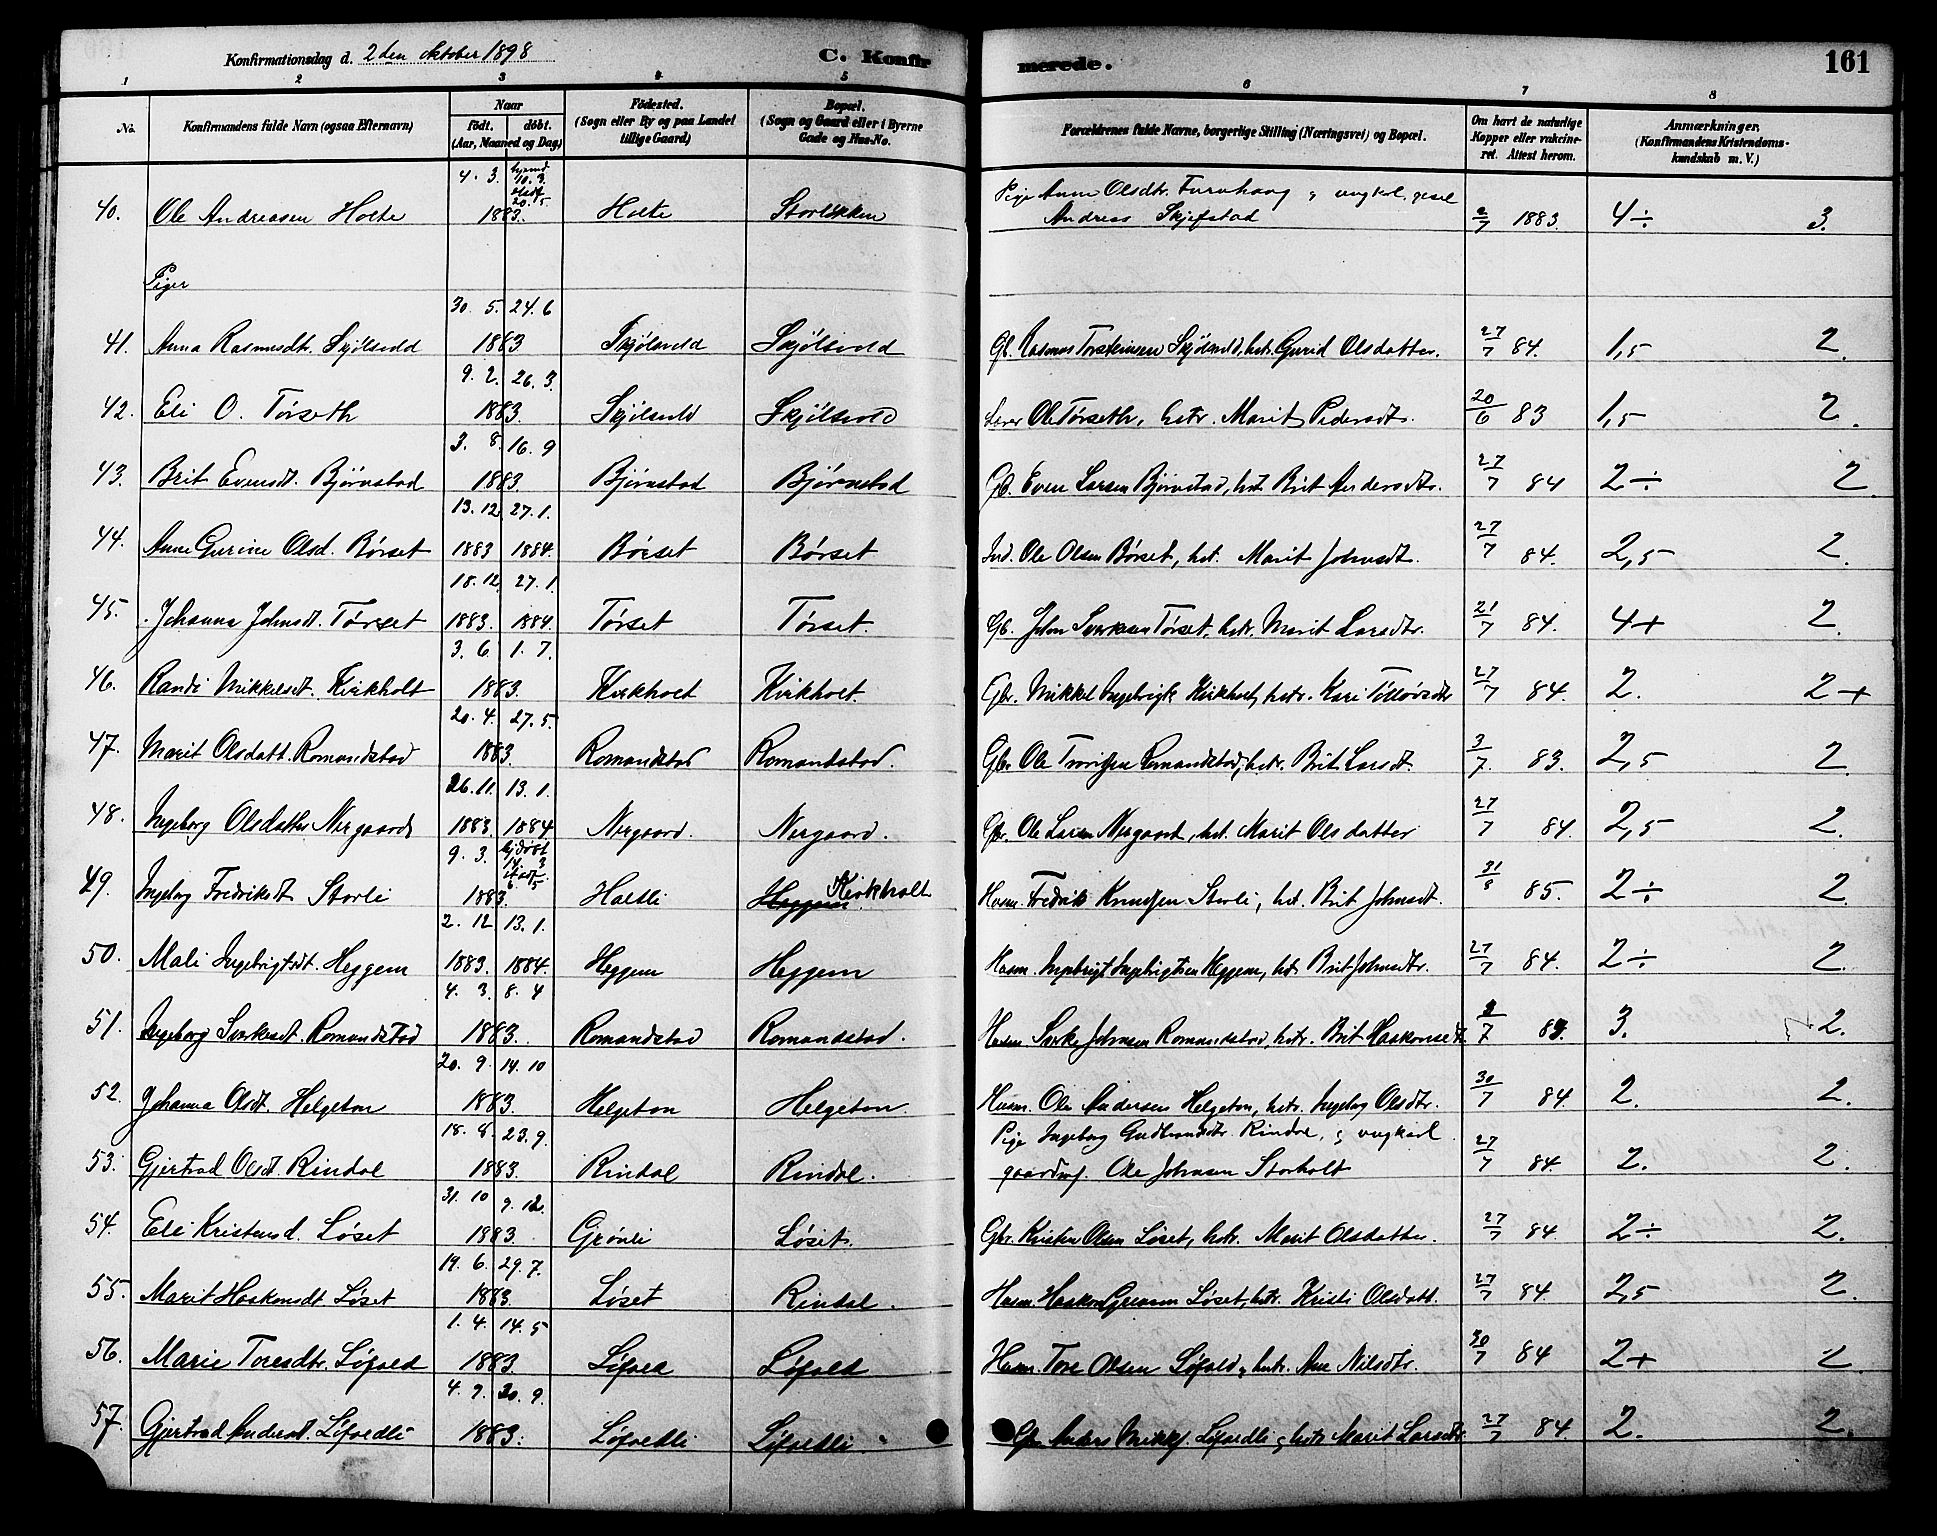 Konfirmationsdag d. 2den oktober 1898 C. Konfirmerede. 161
1 2 3 4 5 6 7 8
No. Konfirmandens fulde Navn (ogsaa Efternavn) Naar født. døbt. (Aar, Maaned og Dag) Fødested. (Sogn eller By og paa Landet tillige Gaard) Bopæl. (Sogn og Gaard eller i Byerne Gade og Hus-No. Forældrenes fulde Navne, borgerlige Stilling (Næringsvei) og Bopæl. Om havt de naturlige Kopper eller vakcineret. Attest herom. Anmærkninger. (Konfirmandens Kristendomskundskab m. V.)
40. Ole Andreasen Holte 4. 3. 1883. hjemd 10. 3. stadf. 20. 5 Holte Storløkken Pige Anne Olsdtr. Furuhaug og ungkal. gaml Andreas Skjefstad 2/7 1883. 4 ÷ 3.
Piger
41. Anna Rasmusdtr. Skjølsvold 30. 5. 24. 6 1883 Skjølsvold Skjølsvold Gb. Rasmus Torsteinsen Skjølsvold, hstr. Gurid Olsdatter. 27/7 84. 1,5 2.
42. Eli O. Tørseth 9. 2. 26. 3. 1883. Skjølsvold Skjølsvold Ole Tørseth, hstr. Marit Pedersdt. 20/6 83 1,5 2.
43. Brit Evensdt. Bjørnstad 3. 8. 16. 9 1883. Bjørnstad Bjørnstad Gb. Even Larsen Bjørnstad, hst. Brit Andersdtr. 27/7 84 2 ÷ 2.
44. Anne Gurine Olsd. Børset 13. 12. 1883 27. 1. 1884. Børset Børset Ind. Ole Olsen Børset, hst. Marit Johnsdt. 27/7 84. 2,5 2.
45. Johanna Johnsdt. Tørset 18. 12. 1883. 27. 1. 1884. Tørset Tørset. Gb. John Sverkesen Tørset, hstr. Marit Larsdtr. 21/7 84. 4 + 2.
46. Randi Mikkelsdt. Kirkholt 3. 6. 1. 7. 1883. Kirkholt Kirkholt. Gbr. Mikkel Ingebrigts Kirkholt, hstr. Kari Tollevsdtr 27/7 84. 2. 2 +
47. Marit Olsdatt. Romundstad 20. 4. 27. 5. 1883. Romundstad Romundstad. Gbr. Ole Romundstad, hstr. Brit Larsdt. 3/7. 83. 2,5 2.
48. Ingeborg Olsdatter Nergaard 26. 11. 1883. 13. 1. 1884 Nergaard. Nergaard. Gbr. Ole Larsen Nergaard, hst. Marit Olsdatter 27/7 84. 2,5 2.
49. Ingeborg Fredriksdt Storli 9. 3. 1883. hjdøbt 14. 3 stadf. 6. 5 Holtli Heggem Kirkholt Husm. Fredrik Knudsen Storli, hst. Brit Johnsdt. 31/8 85. 2 ÷ 2.
50. Mali Ingebrigtsdt. Heggem 2. 12 1883. 13. 1. 1884. Heggem Heggem Husm. Ingebrigt Ingebrigtsen Heggem, hst. Brit Johnsdtr. 27/7 84. 2 ÷ 2.
51. Ingeborg Sverkesdt. Romundstad 4. 3. 8. 4 1883. Romundstad Romundstad. Husm. Sverke Johnsen Romundstad, hstr. Brit Haakonsdt. 2/7 83. 3. 2.
52. Johanna Olsdt. Helgeton 20. 9. 14. 10 1883. Helgeton Helgeton Husm. Ole Andersen Helgeton, hstr. Ingeborg Olsdtr. 30/7 84. 2. 2.
53. Gjertrud Olsdt. Rindal 18. 8. 23. 9. 1883. Rindal Rindal. Pige Ingeborg Gudbrandsdtr. Rindal, og ungkarl gaardmf. Ole Johnsen Storholt 27/7 84. 2. 2.
54. Eli Kristensd. Løset 31. 10 9. 12. 1883. Grønli Løset. Gbr. Kristen Olsen Løset, hstr. Marit Olsdatter. 27/7 84 2 ÷ 2.
55. Marit Haakonsdt. Løset 19. 6. 29. 7. 1883. Løset Rindal. Husm. Haakon Løset, hstr. Kristi Olsdatt. 27/7 84. 2,5 2.
56. Marie Toresdtr. Løfald 1. 4. 14. 5 1883. Løfald Løfald Husm. Tore Olsen Løfald, hstr. Ane Nilsdtr. 30/7 84 2 + 2
57. Gjertrud Andersdt. Løfaldli 4. 9. 30. 9. 1883. Løfaldli Løfaldli Gbr. Anders Mikks. Løfaldli og hstr Marit Larsdtr. 27/7 84. 2. 2.